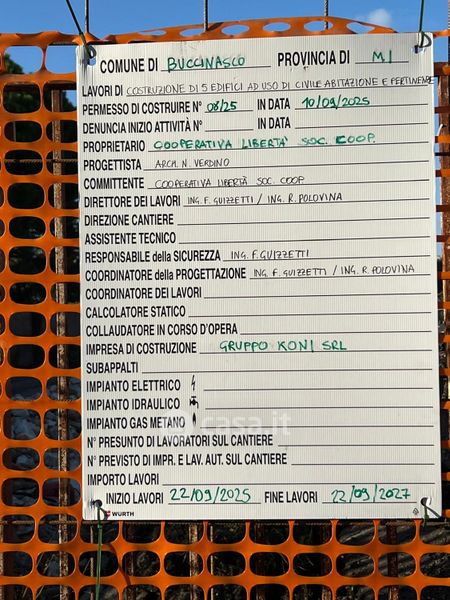 COMUNE DI BUCCINASCO PROVINCIA DI MI
LAVORI DI COSTRUZIONE DI 5 EDIFICI AD USO DI CIVILE ABITAZIONE E PERTINENZE
PERMESSO DI COSTRUIRE N° 08/25 IN DATA 10/09/2025
DENUNCIA INIZIO ATTIVITÀ N° IN DATA
PROPRIETARIO COOPERATIVA LIBERTA' SOC. COOP.
PROGETTISTA ARCH. N. VERDINO
COMMITTENTE COOPERATIVA LIBERTÀ SOC. COOP
DIRETTORE DEI LAVORI ING. F. GUIZZETTI / ING. R. POLOVINA
DIREZIONE CANTIERE
ASSISTENTE TECNICO
RESPONSABILE della SICUREZZA ING. F. GUIZZETTI
COORDINATORE della PROGETTAZIONE ING. F. GUIZZETTI / ING. R. POLOVINA
COORDINATORE DEI LAVORI
CALCOLATORE STATICO
COLLAUDATORE IN CORSO D'OPERA
IMPRESA DI COSTRUZIONE GRUPPO KONI SRL
SUBAPPALTI
IMPIANTO ELETTRICO
IMPIANTO IDRAULICO
IMPIANTO GAS METANO
casa.it
N° PRESUNTO DI LAVORATORI SUL CANTIERE
N° PREVISTO DI IMPR. E LAV. AUT. SUL CANTIERE
IMPORTO LAVORI
INIZIO LAVORI 22/09/2025 FINE LAVORI 22/09/2027
WÜRTH